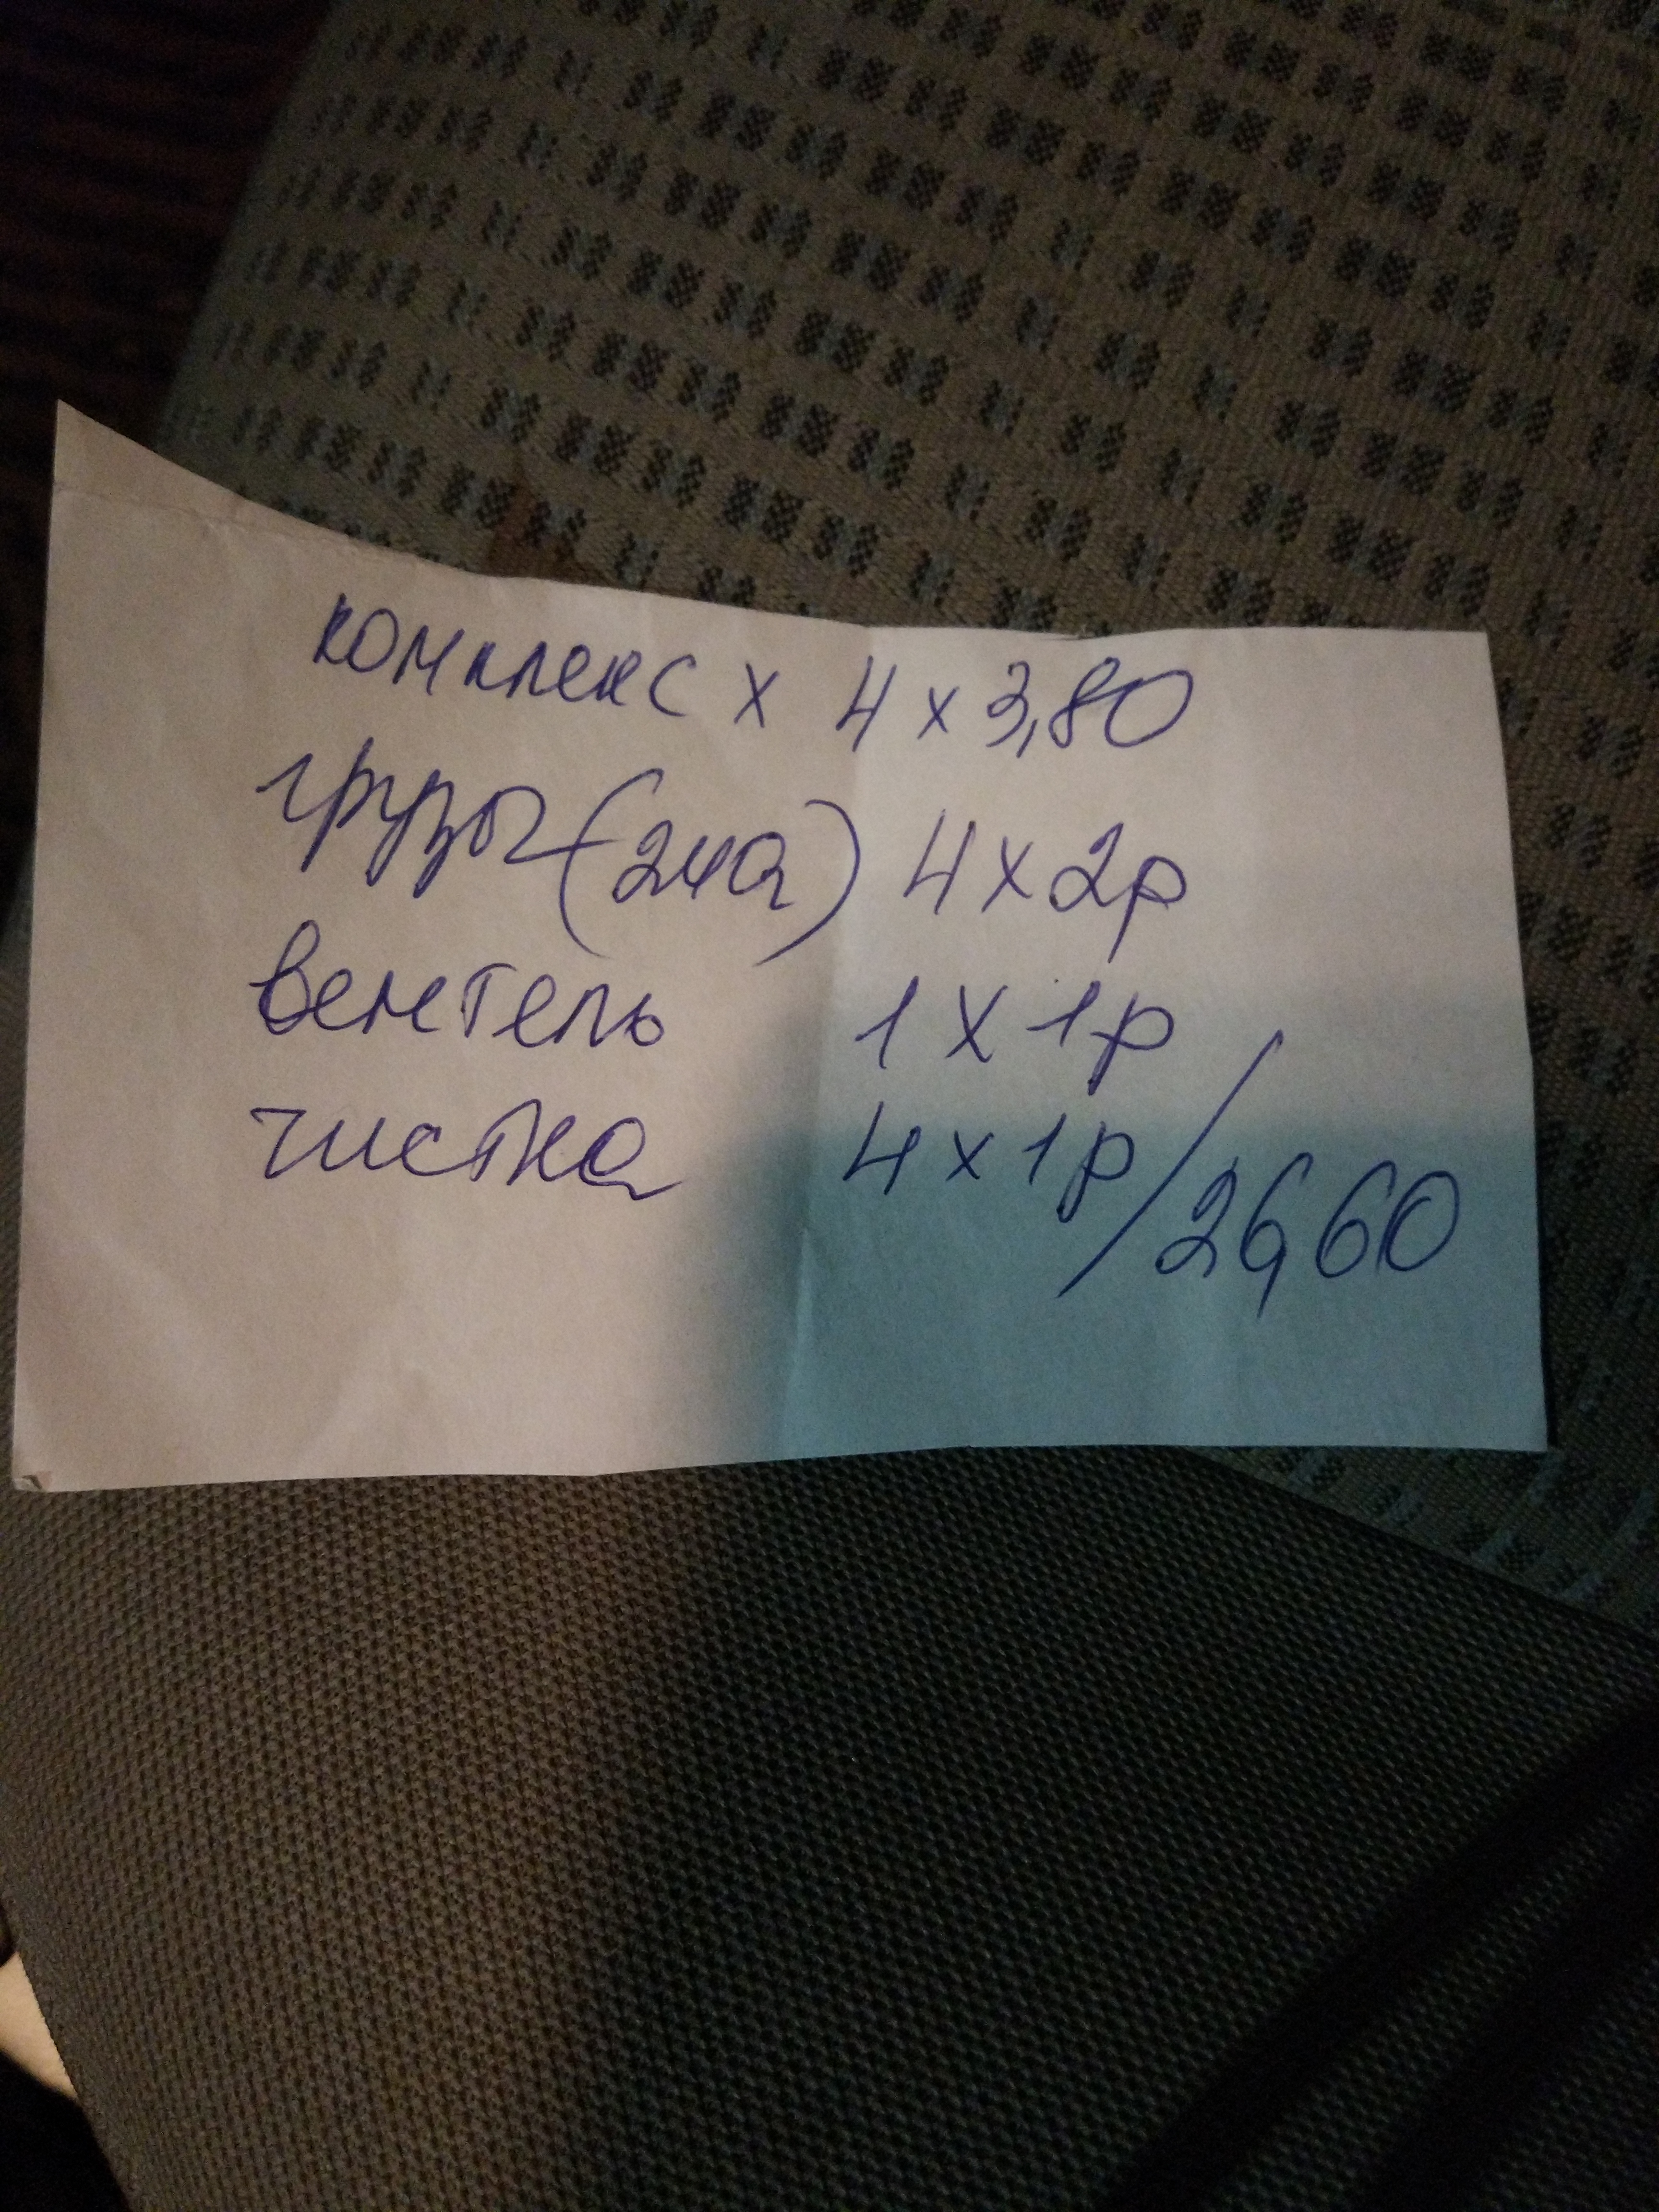 комплекс х 4 х 3,80
грузы (24а) 4 х 2р
вентель 1 х 1р
чистка 4 х 1р / 26,60